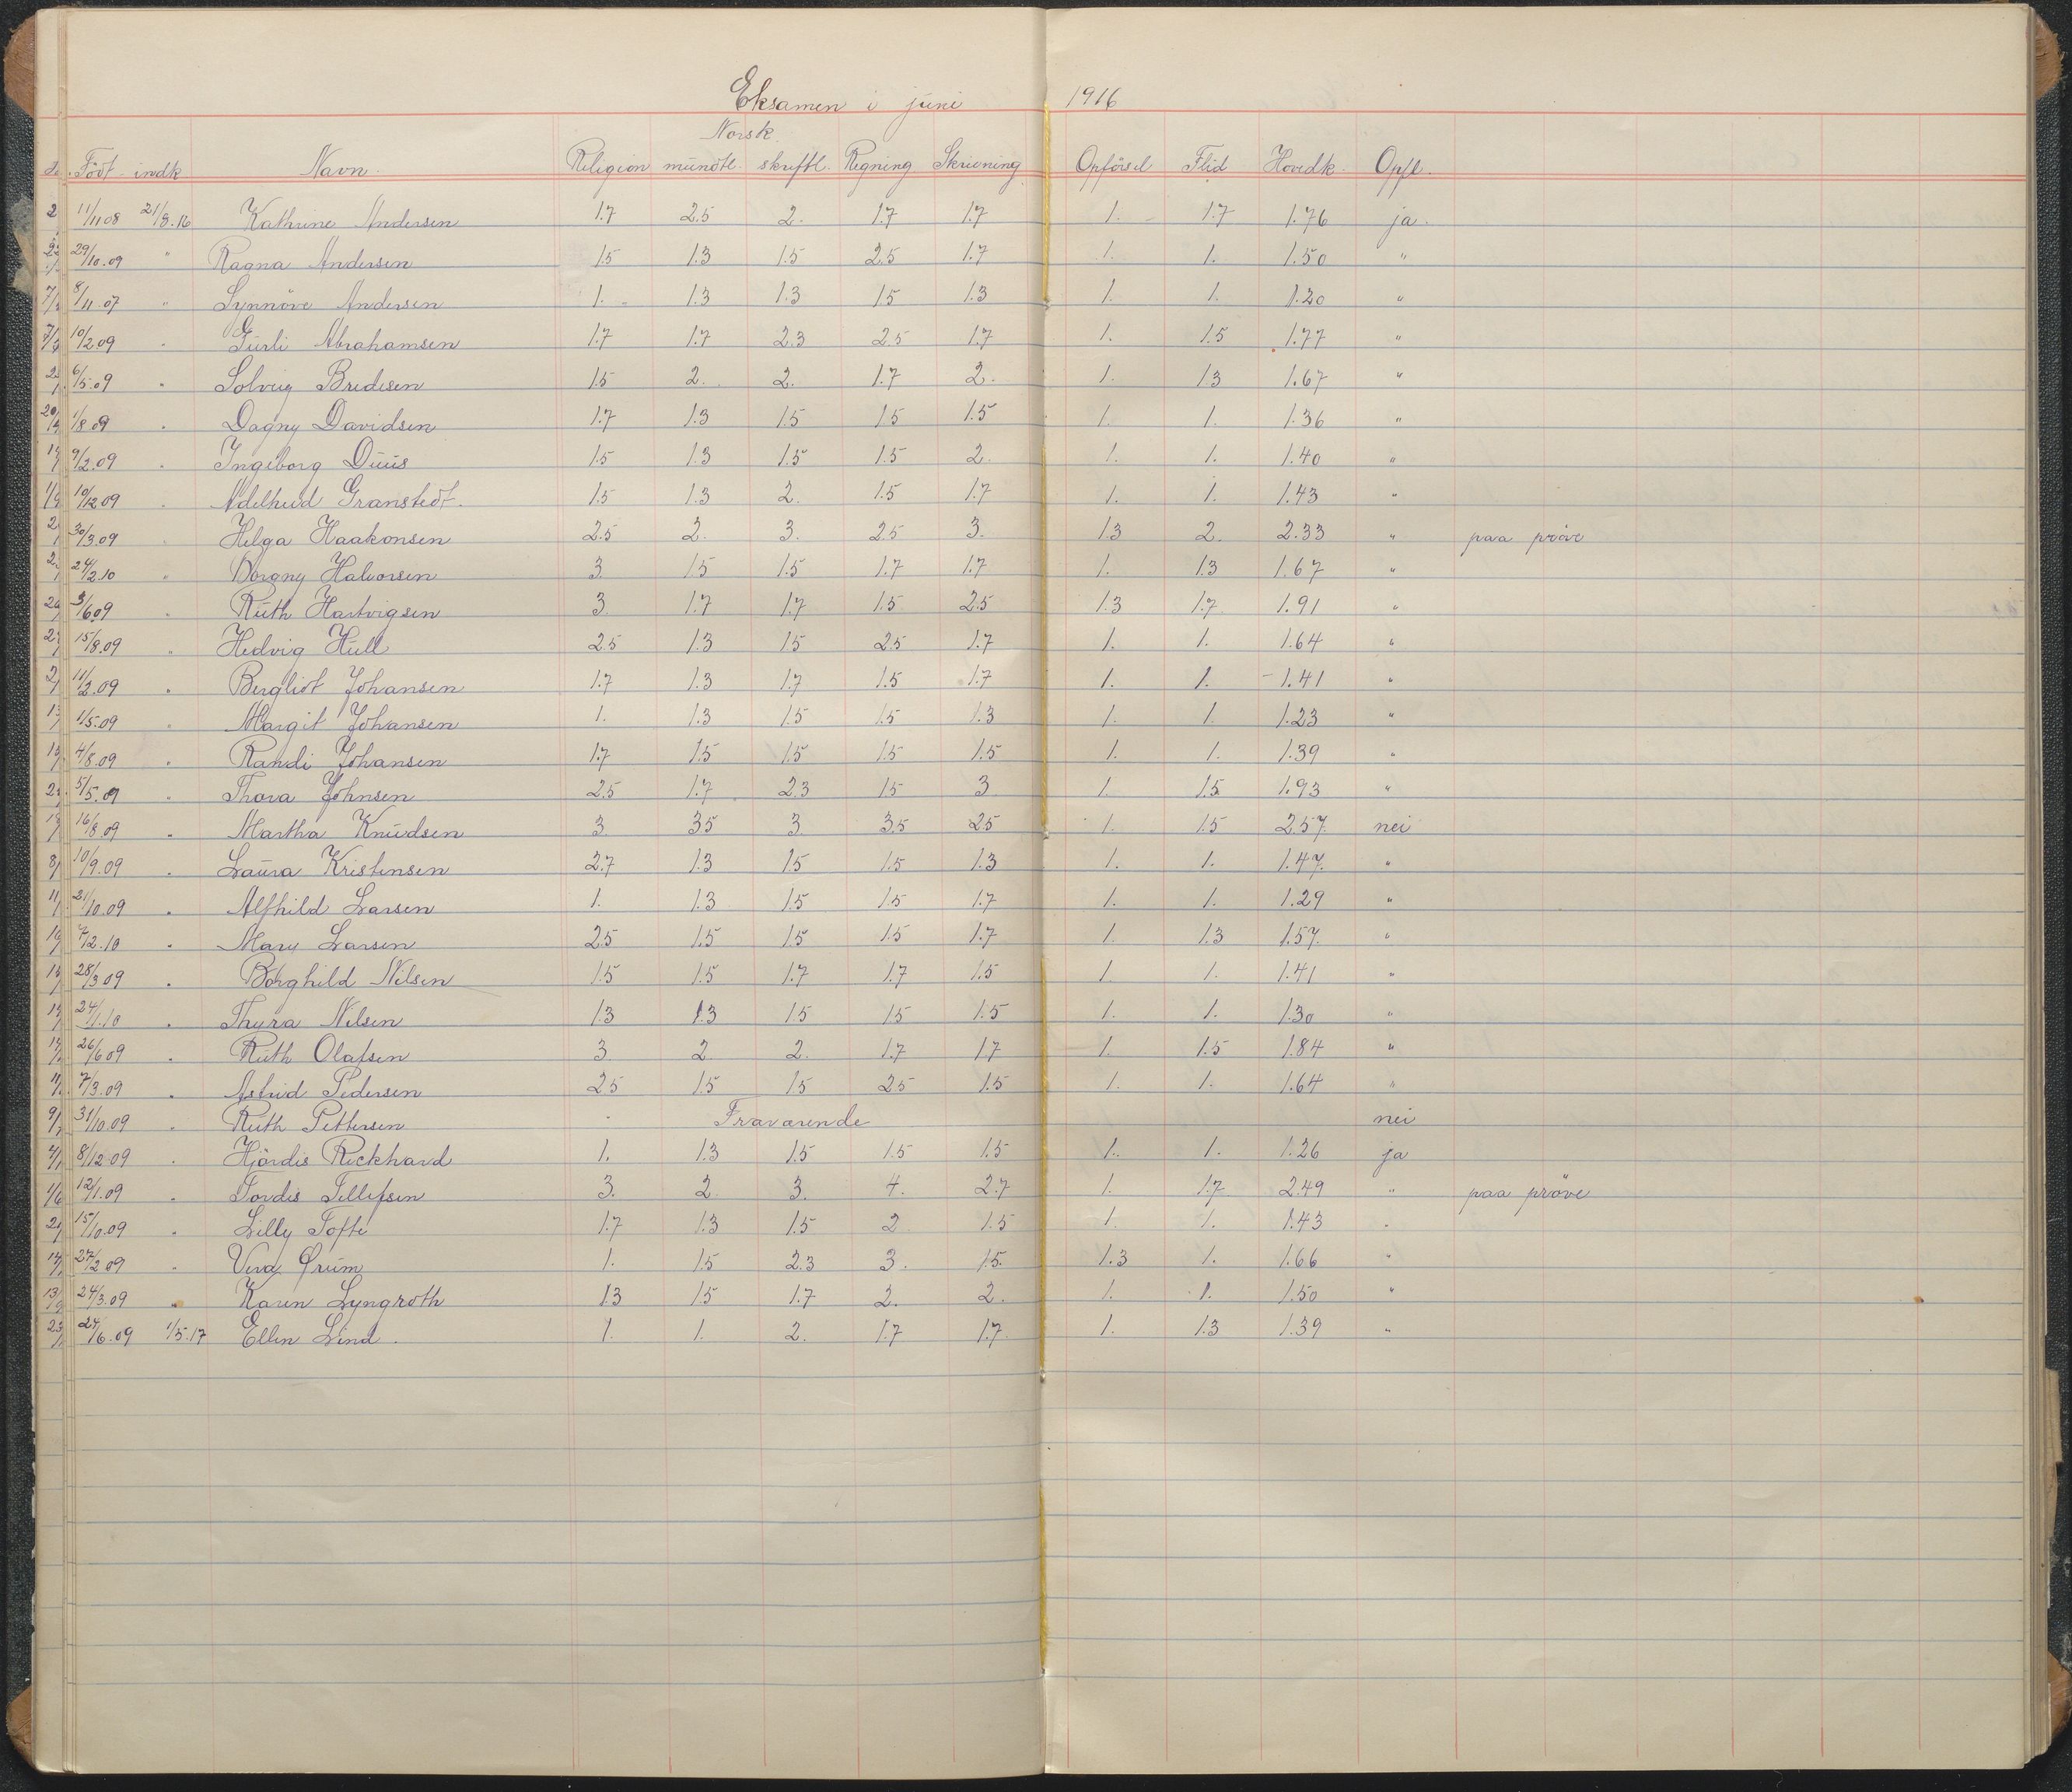 Eksamen i juni 1916
Norsk
Född indk Navn. Religion mundtl. skriftl. Regning Skrivning Opförsel Flid Hovedk. Opfl.
11/11 08 21/8.16 Kathrine Andersen 1.7 2.5 2. 1.7 1.7 1. 1.7 1.76 ja.
29/10.09 " Ragna Andersen 1.5 1.3 1.5 2.5 1.7 1. 1. 1.50 "
8/11.07 " Synnöve Andersen 1. 1.3 1.3 1.5 1.3 1. 1. 1.20 "
10/2.09 " Gurli Abrahamsen 1.7 1.7 2.3 2.5 1.7 1. 1.5 1.77 "
6/5.09 " Solveig Bredesen 1.5 2. 2. 1.7 2. 1. 1.3 1.67 "
1/8 09 " Dagny Davidsen 1.7 1.3 1.5 1.5 1.5 1. 1. 1.36 "
9/2.09 " Ingeborg Duus 1.5 1.3 1.5 1.5 2. 1. 1. 1.40 "
10/12 09 " Adelheid Granstedt. 1.5 1.3 2. 1.5 1.7 1. 1. 1.43 "
30/3.09 " Helga Haakonsen 2.5 2. 3. 2.5 3. 1.3 2. 2.33 " paa pröve
24/2.10 " Borgny Halvorsen 3. 1.5 1.5 1.7 1.7 1. 1.3 1.67 "
3/6 09 " Ruth Hartvigsen 3 1.7 1.7 1.5 2.5 1.3 1.7 1.91 "
15/8.09 " Hedvig Hull 2.5 1.3 1.5 2.5 1.7 1. 1. 1.64 "
11/2.09 " Bergliot Johansen 1.7 1.3 1.7 1.5 1.7 1. 1. 1.41 "
1/5.09 " Margit Johansen 1. 1.3 1.5 1.5 1.3 1. 1. 1.23 "
4/8.09 " Randi Johansen 1.7 1.5 1.5 1.5 1.5 1. 1. 1.39 "
5/5.09 " Thora Johnsen 2.5 1.7 2.3 1.5 3 1. 1.5 1.93 "
16/8.09 " Martha Knudsen 3 3.5 3 3.5 2.5 1. 1.5 2.57. nei
10/9.09 " Laura Kristensen 2.7 1.3 1.5 1.5 1.3 1. 1. 1.47. "
21/10.09 " Alfhild Larsen 1. 1.3 1.5 1.5 1.7 1. 1. 1.29 "
7/2.10 " Mary Larsen 2.5 1.5 1.5 1.5 1.7 1. 1.3 1.57. "
28/3 09 " Borghild Nilsen 1.5 1.5 1.7 1.7 1.5 1. 1. 1.41 "
24/1.10 " Thyra Nilsen 1.3 1.3 1.5 1.5 1.5 1. 1. 1.30 "
26/6 09 " Ruth Olafsen 3 2 2. 1.7 1.7 1. 1.5 1.84 "
7/3.09 " Astrid Pedersen 2.5 1.5 1.5 2.5 1.5 1. 1. 1.64 "
31/10.09 " Ruth Pettersen Fraværende nei
8/12 09 " Hjördis Rickhard 1. 1.3 1.5 1.5 1.5 1. 1. 1.26 ja
12/1.09 " Tordis Tellefsen 3. 2 3. 4. 2.7 1. 1.7 2.49 " paa pröve
15/10.09 " Lilly Tofte 1.7 1.3 1.5 2 1.5 1. 1. 1.43 "
27/2 09 " Vera Ørum 1. 1.5 2.3 3. 1.5. 1.3 1. 1.66 "
24/3.09 " Karen Lyngroth 1.3 1.5 1.7 2. 2. 1. 1. 1.50 "
24/6.09 1/5.17 Ellen Lind. 1. 1. 2. 1.7 1.7. 1. 1.3 1.39 "